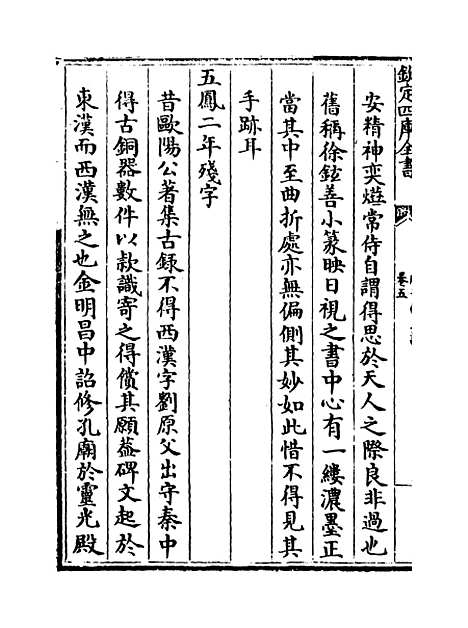 欽定四庫全書
卷五
安精神奕爀常侍自謂得思於天人之際良非過也
舊稱徐鉉善小篆映日視之書中心有一縷濃墨正
當其中至曲折處亦無偏側其妙如此惜不得見其
手跡耳
五鳳二年殘字
昔歐陽公著集古録不得西漢字劉原父出守秦中
得古銅器數件以款識寄之得償其願葢碑文起於
東漢而西漢無之也金明昌中詔修孔廟於靈光殿